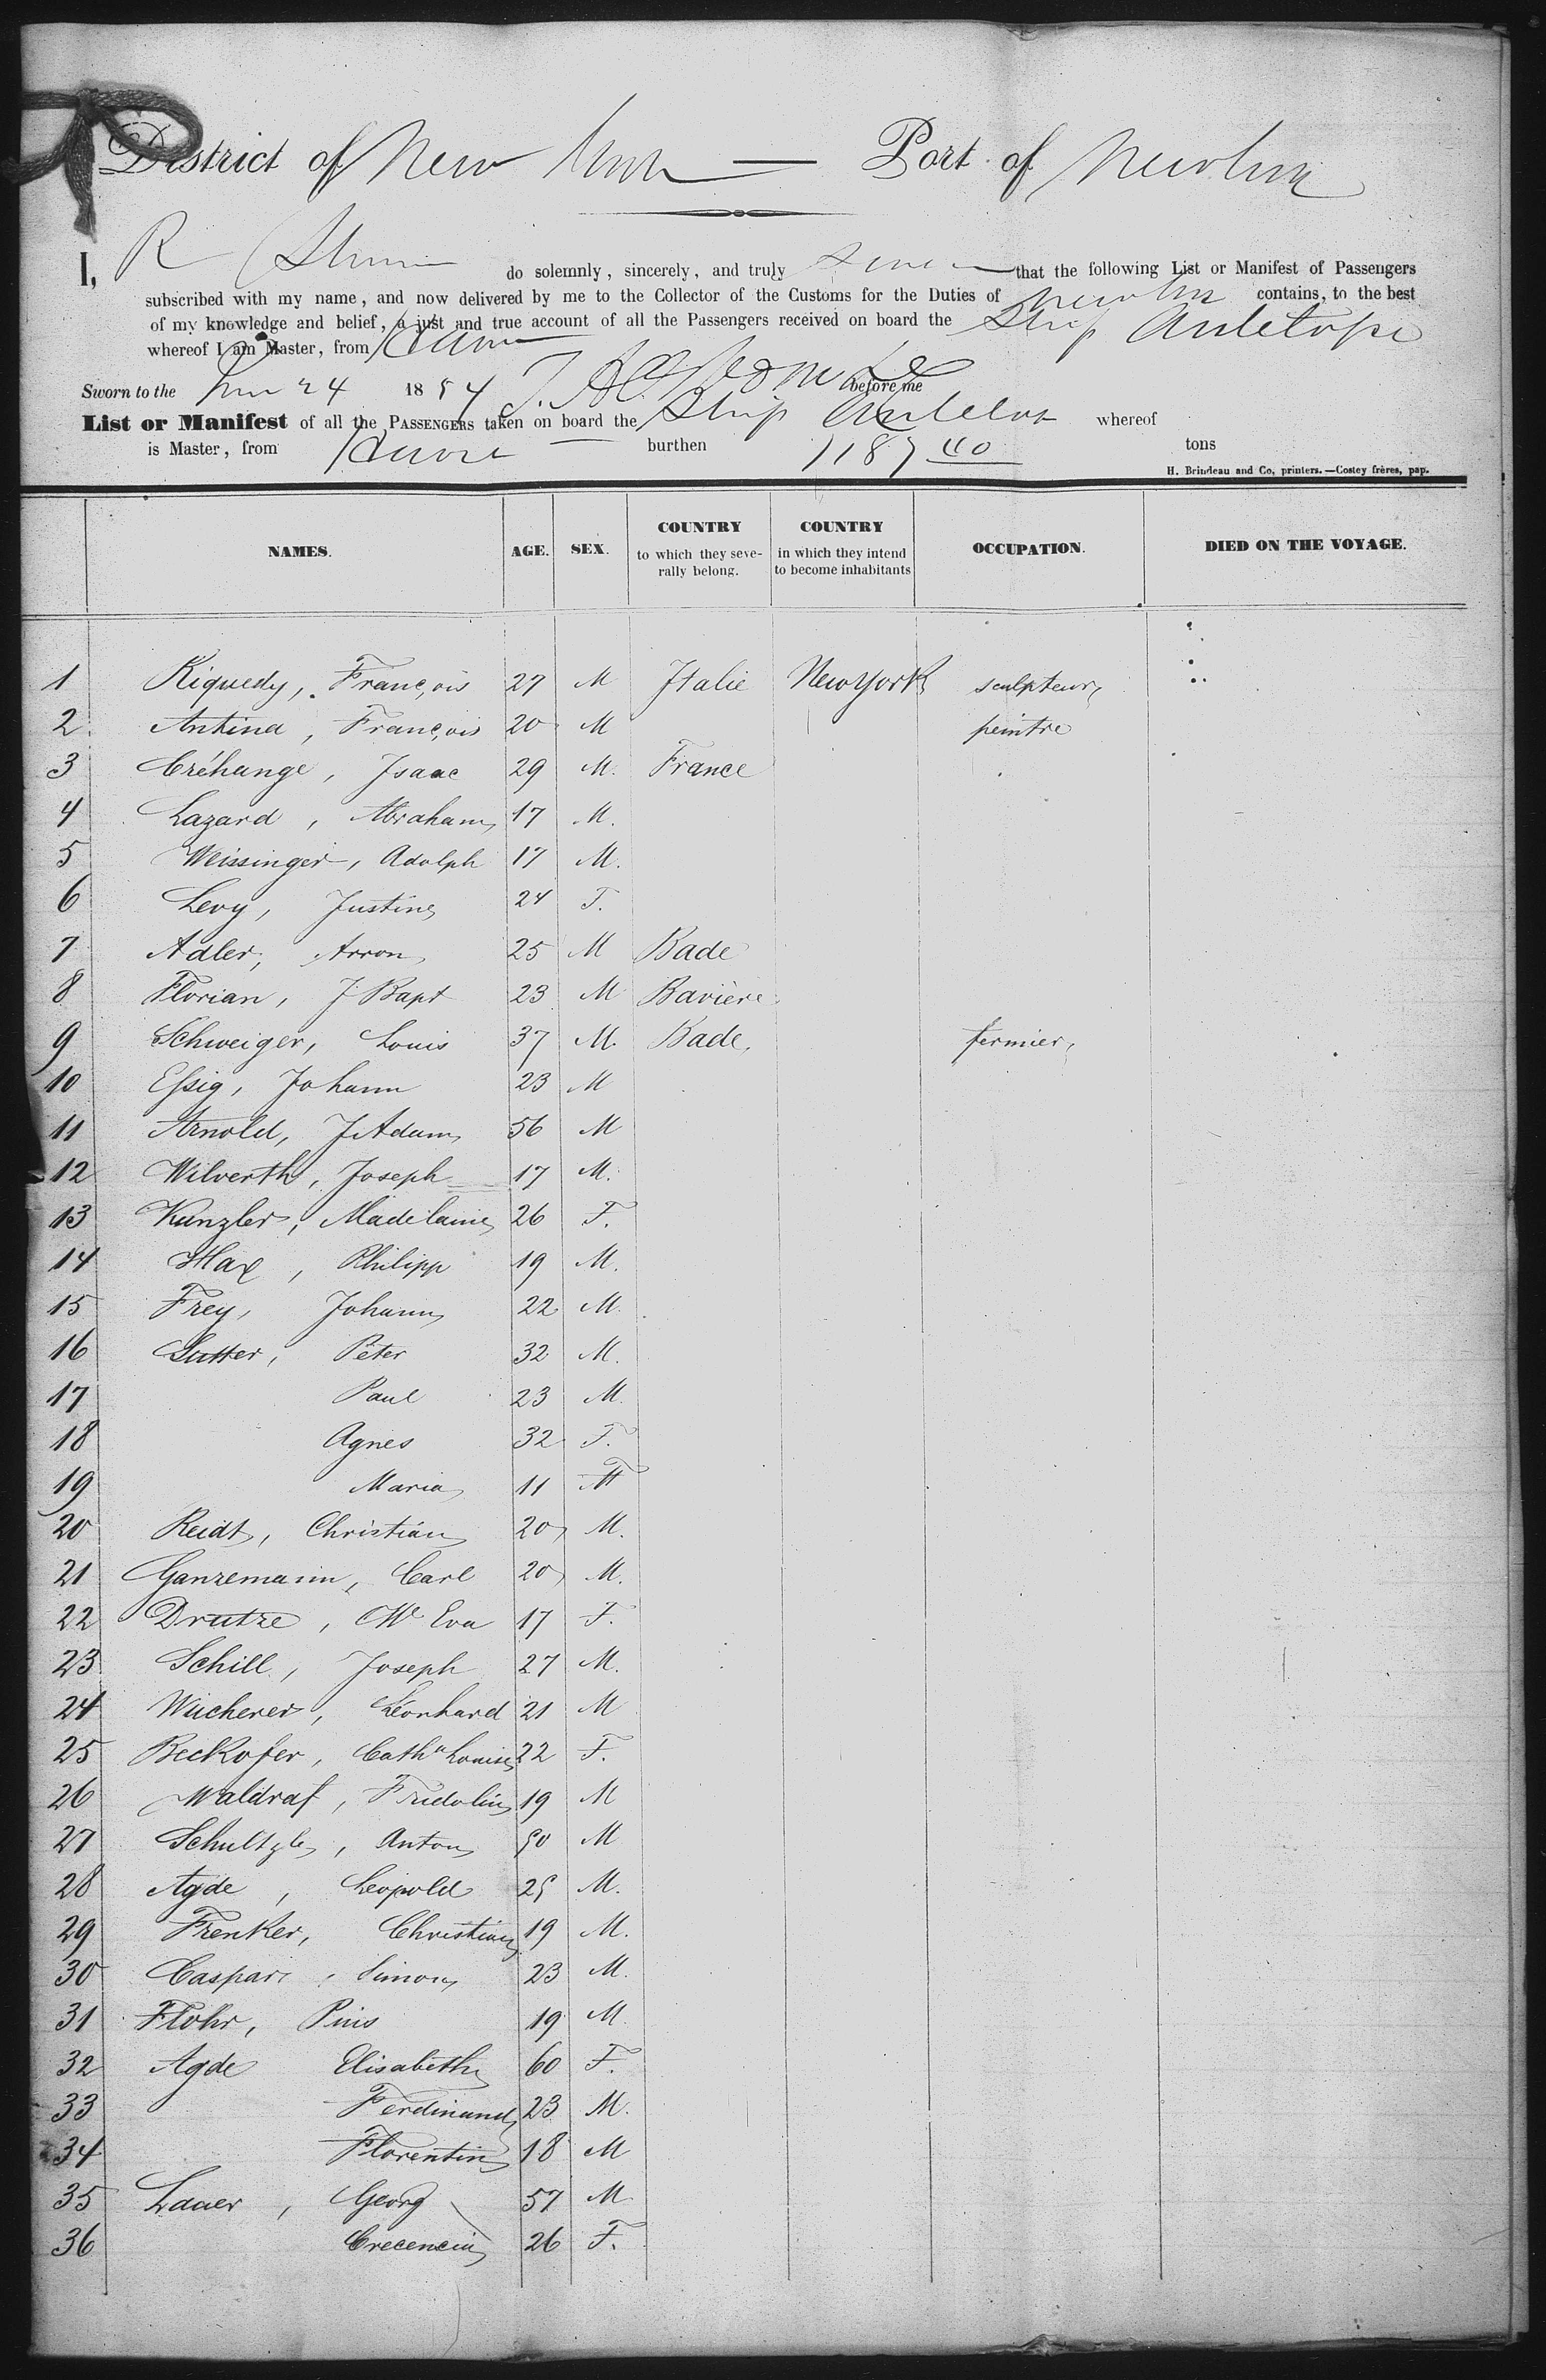 District of New York — Port of New York
I, R do solemnly, sincerely, and truly swear that the following List or Manifest of Passengers
subscribed with my name, and now delivered by me to the Collector of the Customs for the Duties of New York contains, to the best
of my knowledge and belief, a just and true account of all the Passengers received on board the Ship Antelope
whereof I am Master, from Havre
Sworn to the 24 1854 before me
List or Manifest of all the PASSENGERS taken on board the Ship Antelope whereof
is Master, from Havre burthen 1187 tons
H. Brindeau and Co, printers. —Costey frères, pap.
NAMES. AGE. SEX. COUNTRY to which they severally belong. COUNTRY in which they intend to become inhabitants OCCUPATION. DIED ON THE VOYAGE.
1 Riquedy, François 27 M Italie New York sculpteur
2 Antina, François 20 M peintre
3 Créhange, Isaac 29 M. France
4 Lazard, Abraham 17 M.
5 Weissinger, Adolph 17 M.
6 Levy, Justine 24 F.
7 Adler, Arron 25 M Bade
8 Florian, J Bapt 23 M Bavière
9 Schweiger, Louis 37 M. Bade, fermier,
10 Eſsig, Johann 23 M
11 Arnold, J Adam 56 M
12 Wilverth, Joseph 17 M.
13 Kunzler, Madelaine 26 F.
14 Hax, Philipp 19 M.
15 Frey, Johann 22 M.
16 Sutter, Peter 32 M.
17 Paul 23 M.
18 Agnes 32 F.
19 Maria 11 F
20 Reidt, Christian 20 M.
21 Ganzemann, Carl 20 M.
22 Drutze, Me Eva 17 F.
23 Schill, Joseph 27 M.
24 Wucherer, Léonhard 21 M
25 Beckofer, Catha Louise 22 F.
26 Waldraf, Fridolin 19 M
27 Schultzle, Anton 50 M
28 Agde, Léopold 25 M.
29 Frenker, Christian 19 M.
30 Caspari, Simon 23 M.
31 Flohr, Pius 19 M
32 Agde Elisabeth 60 F.
33 Ferdinand 23 M.
34 Florentin 18 M
35 Lauer, Georg 57 M
36 Crecencia 26 F.